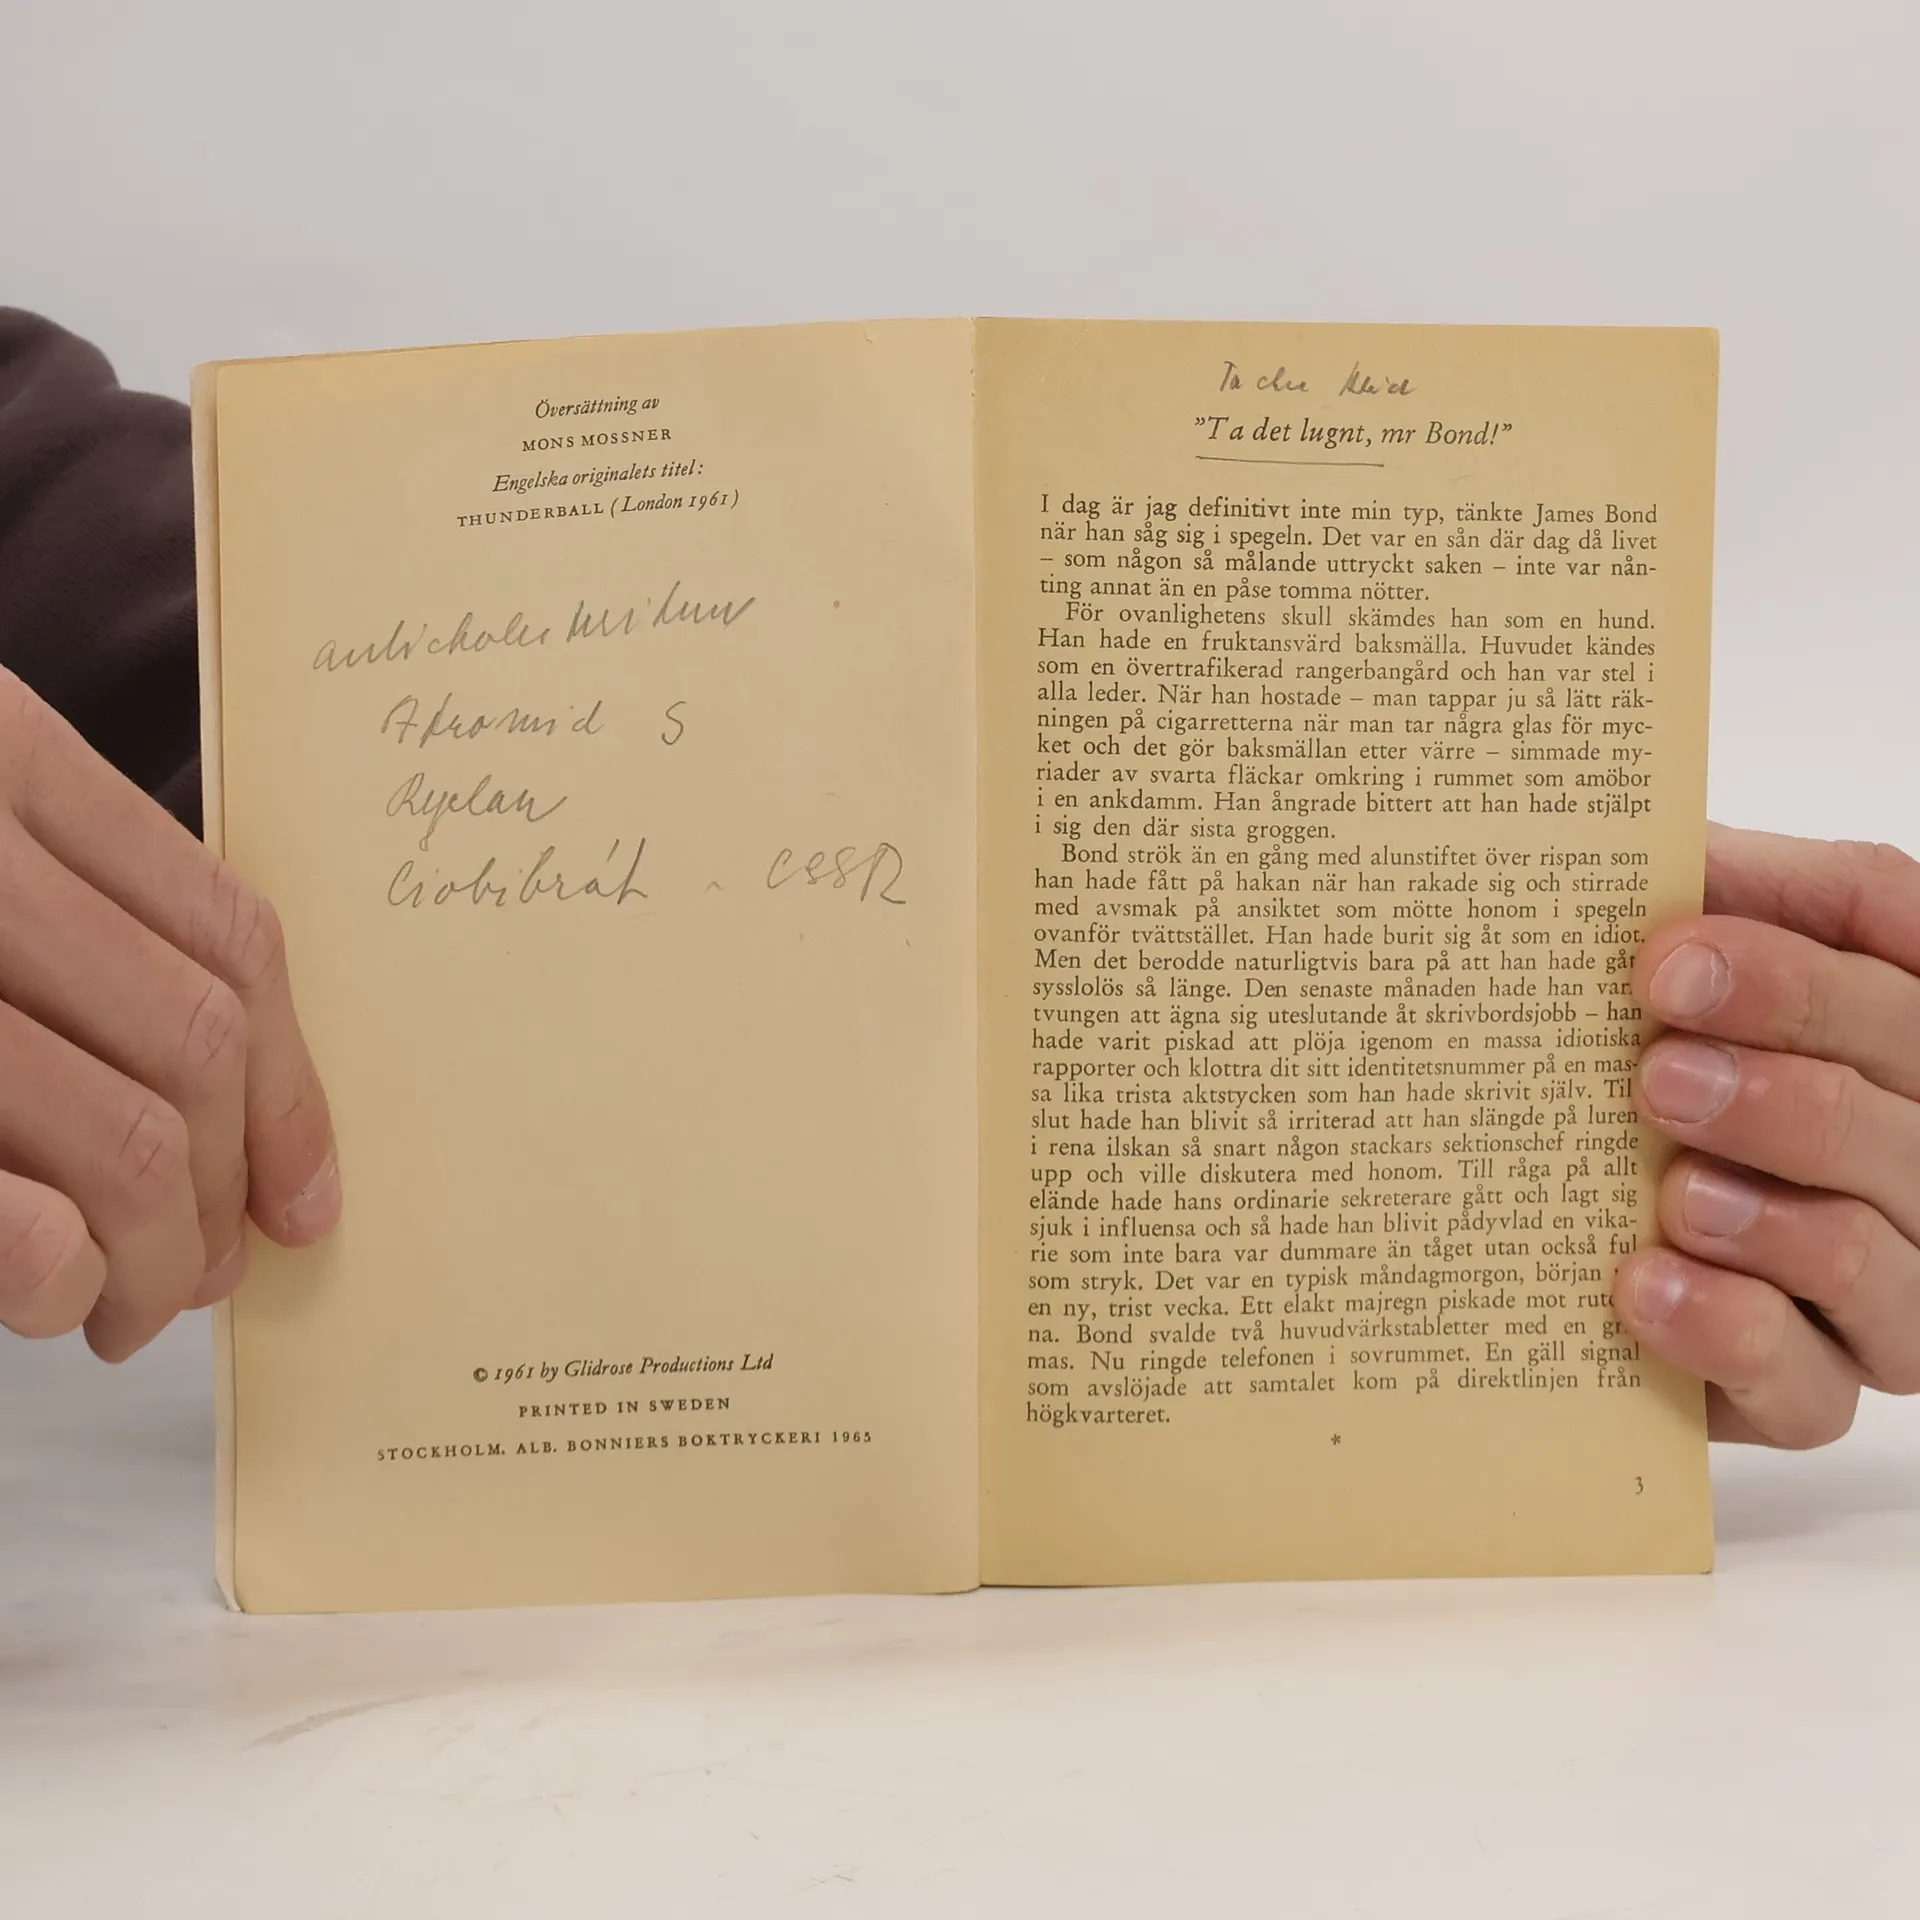 Översättning av
MONS MOSSNER
Engelska originalets titel:
THUNDERBALL (London 1961)
Atromid S
Ciobibrát - CSSR
© 1961 by Glidrose Productions Ltd
PRINTED IN SWEDEN
STOCKHOLM. ALB. BONNIERS BOKTRYCKERI 1965
"Ta det lugnt, mr Bond!"
I dag är jag definitivt inte min typ, tänkte James Bond
när han såg sig i spegeln. Det var en sån där dag då livet
– som någon så målande uttryckt saken – inte var nån-
ting annat än en påse tomma nötter.
För ovanlighetens skull skämdes han som en hund.
Han hade en fruktansvärd baksmälla. Huvudet kändes
som en övertrafikerad rangerbangård och han var stel i
alla leder. När han hostade – man tappar ju så lätt räk-
ningen på cigarretterna när man tar några glas för myc-
ket och det gör baksmällan etter värre – simmade my-
riader av svarta fläckar omkring i rummet som amöbor
i en ankdamm. Han ångrade bittert att han hade stjälpt
i sig den där sista groggen.
Bond strök än en gång med alunstiftet över rispan som
han hade fått på hakan när han rakade sig och stirrade
med avsmak på ansiktet som mötte honom i spegeln
ovanför tvättstället. Han hade burit sig åt som en idiot.
Men det berodde naturligtvis bara på att han hade gått
sysslolös så länge. Den senaste månaden hade han var
tvungen att ägna sig uteslutande åt skrivbordsjobb – han
hade varit piskad att plöja igenom en massa idiotiska
rapporter och klottra dit sitt identitetsnummer på en mas-
sa lika trista aktstycken som han hade skrivit själv. Til
slut hade han blivit så irriterad att han slängde på luren
i rena ilskan så snart någon stackars sektionschef ringde
upp och ville diskutera med honom. Till råga på allt
elände hade hans ordinarie sekreterare gått och lagt sig
sjuk i influensa och så hade han blivit pådyvlad en vika-
rie som inte bara var dummare än tåget utan också ful
som stryk. Det var en typisk måndagmorgon, början
en ny, trist vecka. Ett elakt majregn piskade mot rut
na. Bond svalde två huvudvärkstabletter med en gr
mas. Nu ringde telefonen i sovrummet. En gäll signal
som avslöjade att samtalet kom på direktlinjen från
högkvarteret.
*
3